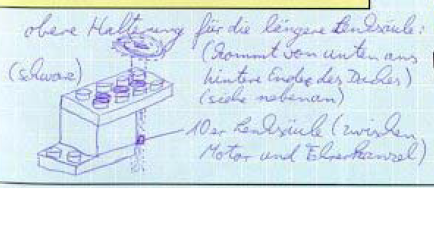 obere Halterung für die längere Lenksäule:
(kommt von unten ans
hintere Ende des Daches)
(siehe nebenan)
(schwarz)
10er Lenksäule (zwischen
Motor und